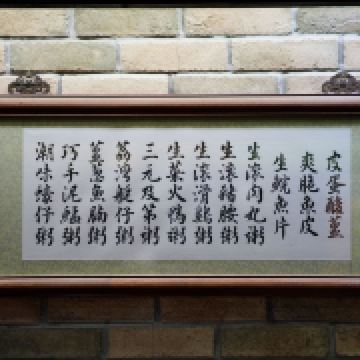 皮蛋酸薑
爽脆魚皮
生鯇魚片
生滾肉丸粥
生滾豬腰粥
生滾滑雞粥
生菜火鴨粥
三元及第粥
荔灣艇仔粥
薑蔥魚腩粥
巧手泥鯭粥
潮味蠔仔粥